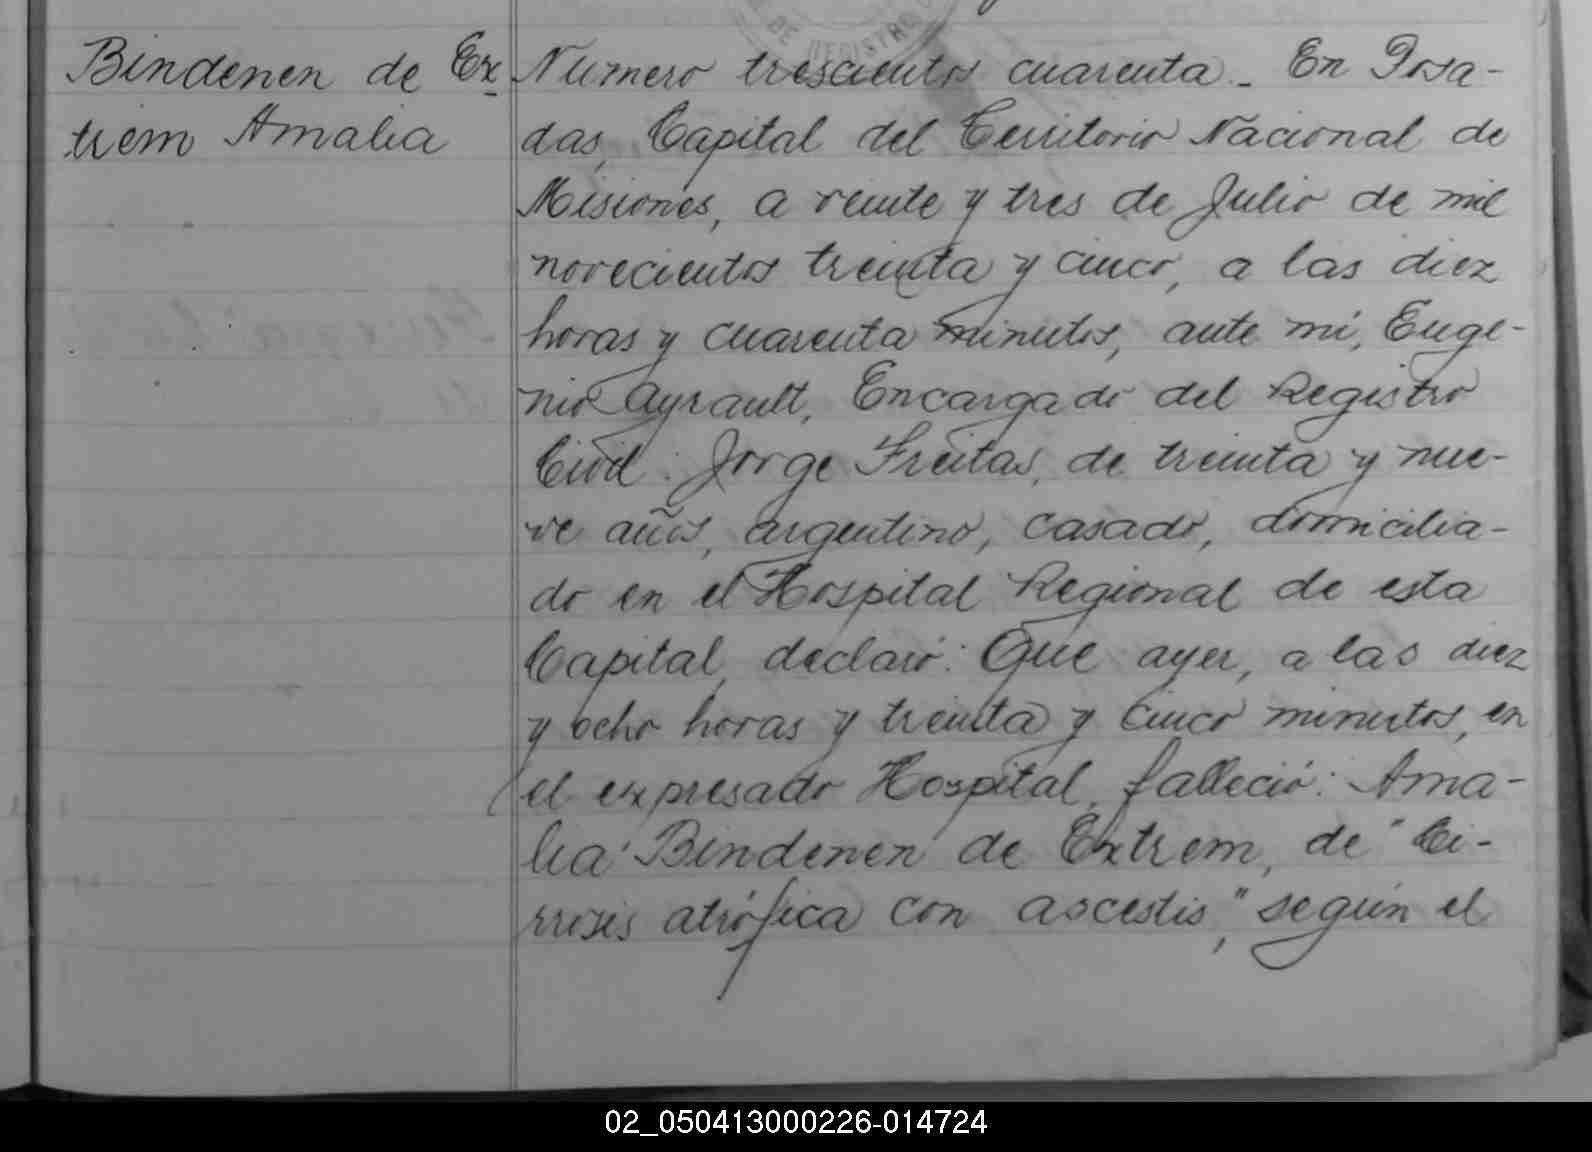 Bindenen de Ex
trem Amalia
DE REGISTRO
Numero trescientos cuarenta._ En Posa-
das, Capital del Territorio Nacional de
Misiones, a veinte y tres de Julio de mil
novecientos treinta y cinco, a las diez
horas y cuarenta minutos, ante mí, Euge-
nio Ayrault, Encargado del Registro
Civil: Jorge Freitas, de treinta y nue-
ve años, argentino, casado, domicilia-
do en el Hospital Regional de esta
Capital, declaró: Que ayer, a las diez
y ocho horas y treinta y cinco minutos, en
el expresado Hospital, falleció: Ama-
lia Bindenen de Extrem, de "Ci-
rrosis atrófica con ascestis," según el
02_050413000226-014724